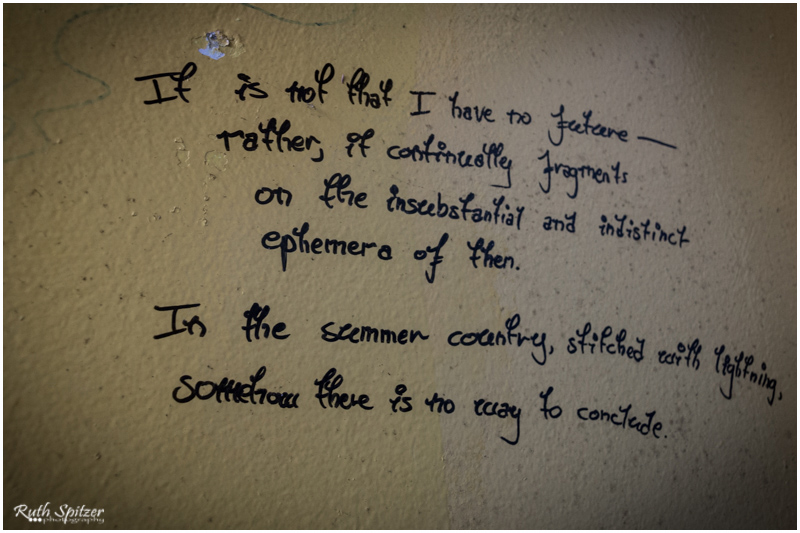 It is not that I have no future —
rather, it continually fragments
on the insubstantial and indistinct
ephemera of then.
In the summer country, stitched with lightning,
somehow there is no way to conclude.
Ruth Spitzer
photography